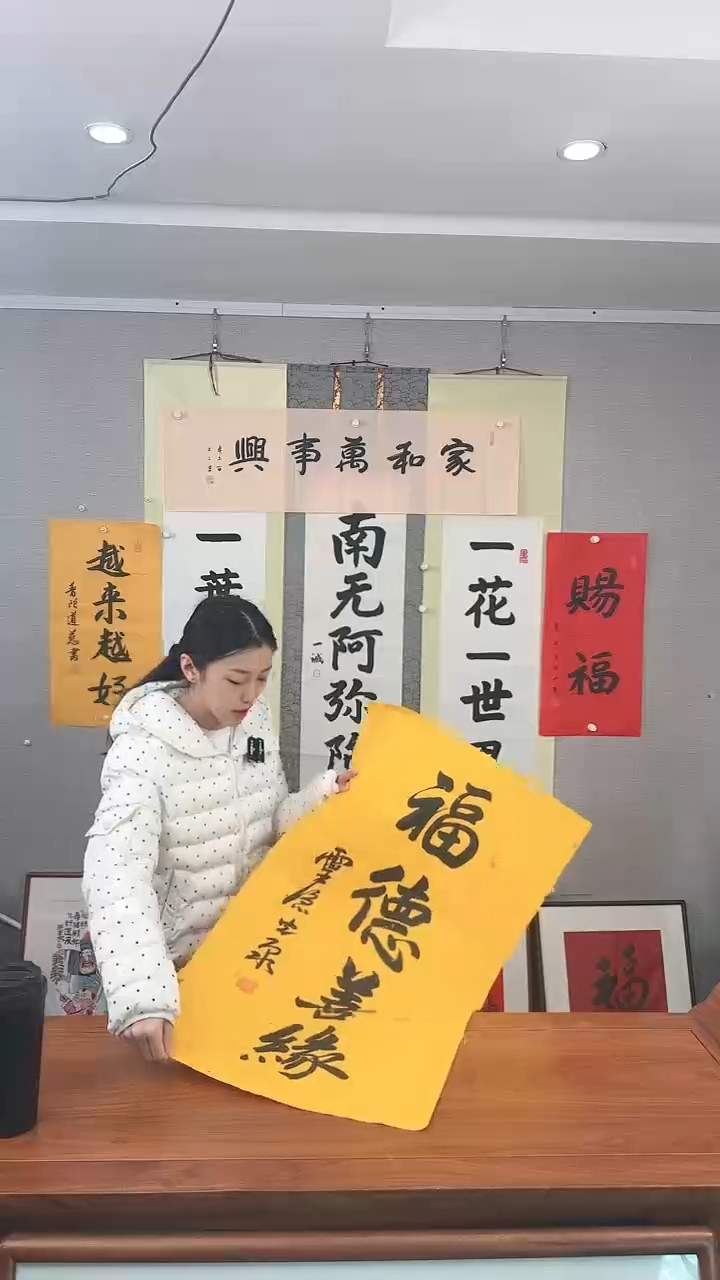 家和萬事興
越来越好
普陀道慈書
一葉
南无阿弥陀
一誠
一花一世界
賜福
福德善緣
福